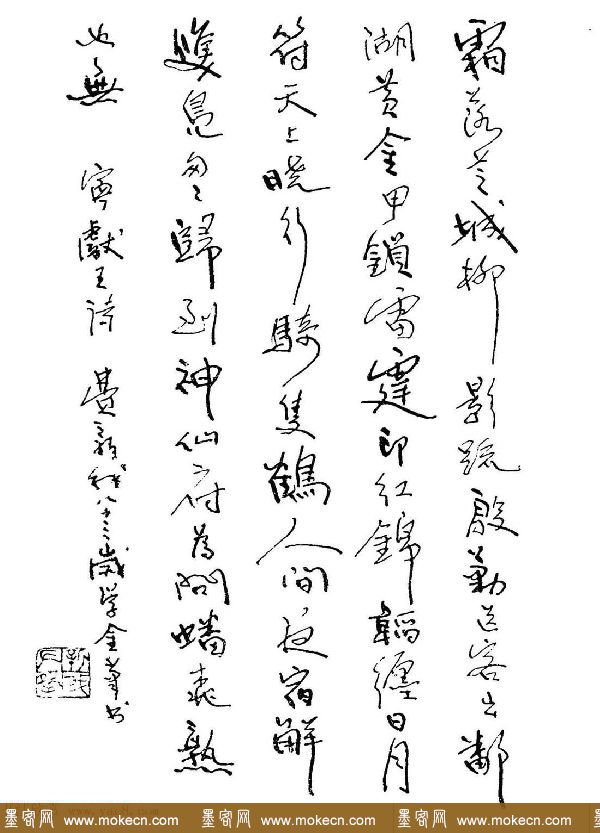 霜落芝城柳影疏殷勤送客出鄱
湖黄金甲鎖雷霆印红錦韜纏日月
符天上晓行騎隻鶴人间夜宿解
雙凫匆〻歸到神仙府為问蟠桃熟
也無 寧獻王诗 費新我八十三歲学金筆书
墨客网 www.mokecn.com 墨客网 www.mokecn.com 墨客网 www.mokecn.com